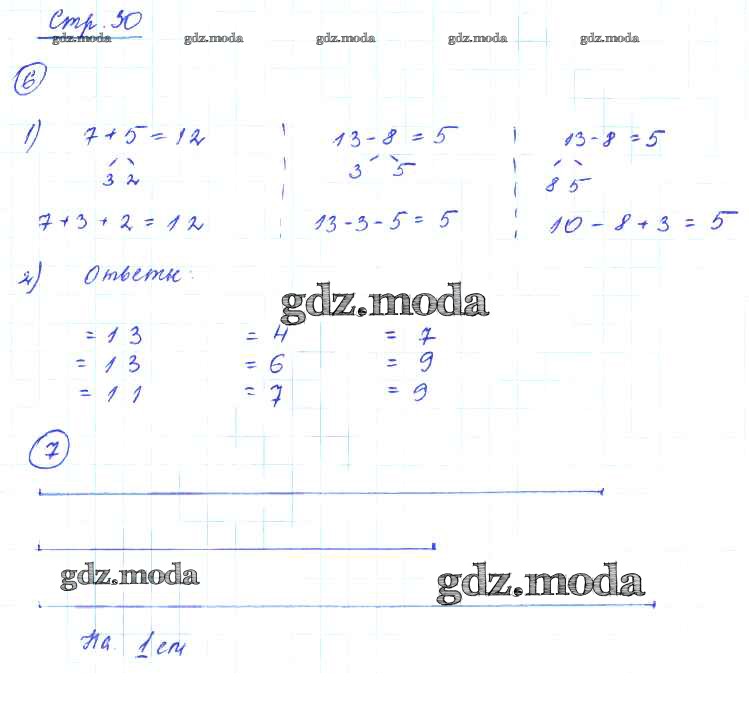 Стр. 30
gdz.moda gdz.moda gdz.moda gdz.moda gdz.moda
6
1) 7 + 5 = 12 13 - 8 = 5 13 - 8 = 5
3 2 3 5 8 5
7 + 3 + 2 = 12 13 - 3 - 5 = 5 10 - 8 + 3 = 5
2) Ответы:
gdz.moda
= 13 = 4 = 7
= 13 = 6 = 9
= 11 = 7 = 9
7
gdz.moda gdz.moda
На. 1 см